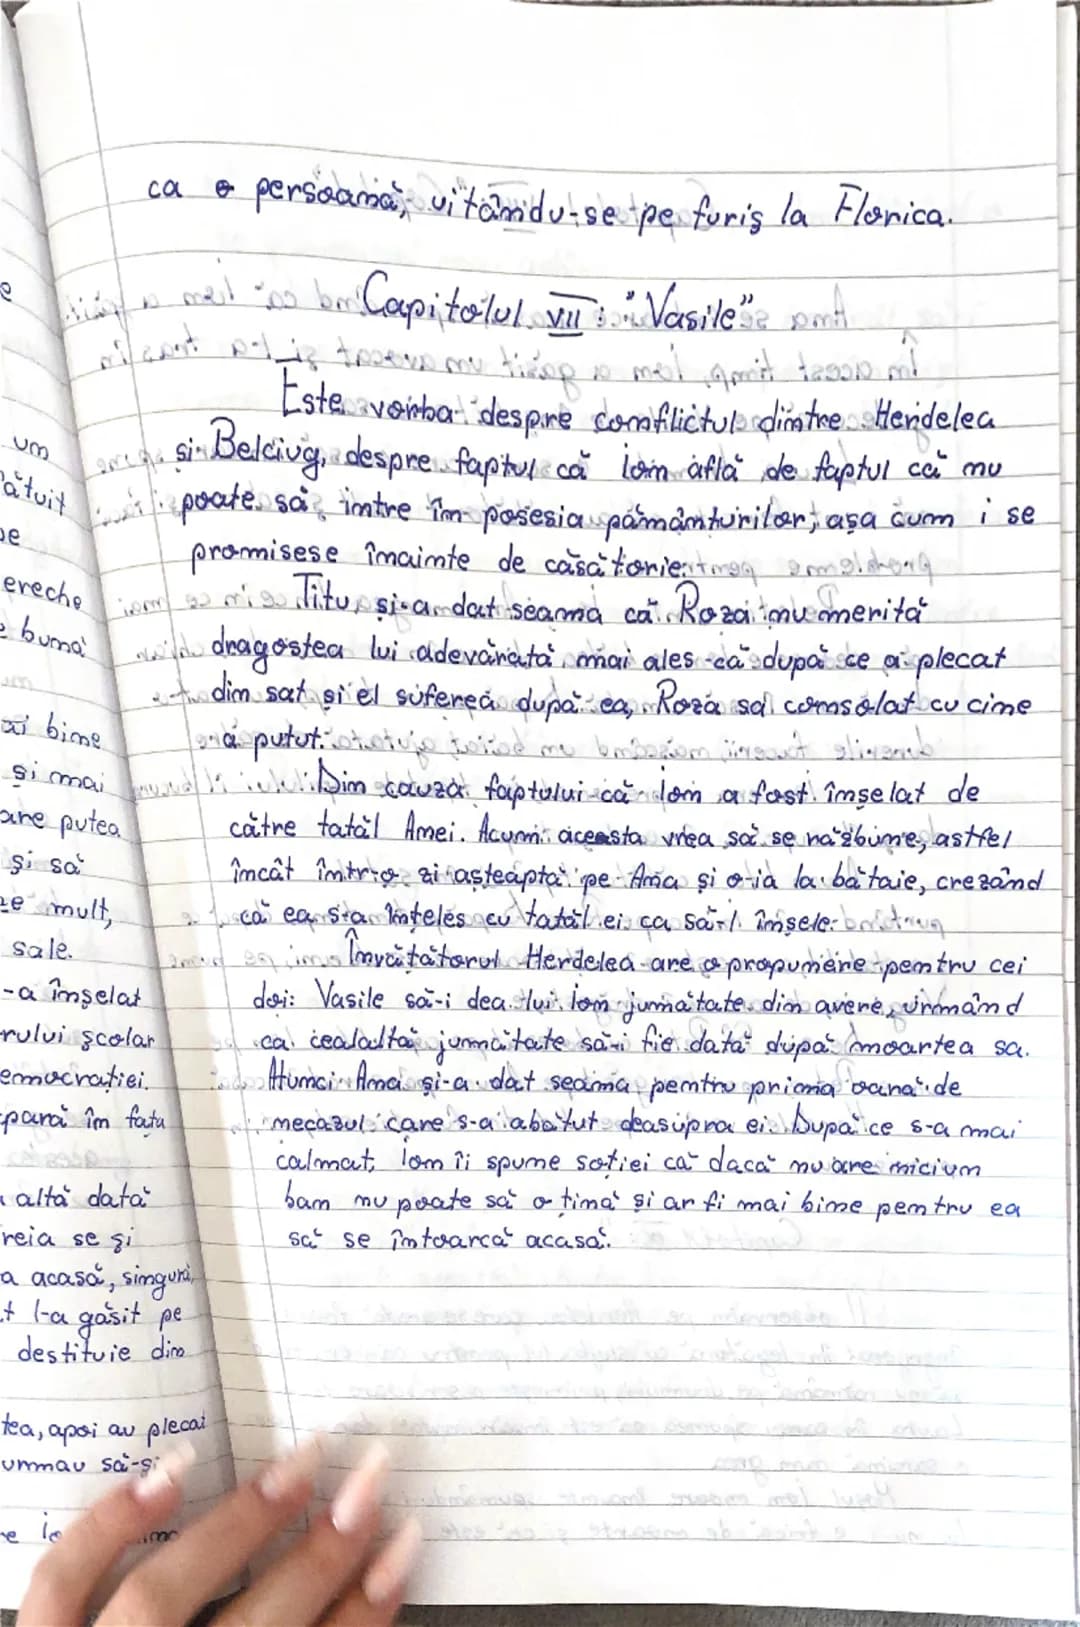 ca o persoană, uitându-se pe furiș la Florica.
Capitolul VII: "Vasile"
Este vorba despre conflictul dintre Herdelea
și Belciug, despre faptul că Ion află de faptul că nu
poate să intre în posesia pământurilor, așa cum i se
promisese înainte de căsătorie.
Titu și-a dat seama că Roza nu merită
dragostea lui adevărată mai ales că după ce a plecat
din sat și el suferea după ea, Roza sa consolat cu cine
a putut.
Din cauza faptului că Ion a fost înșelat de
către tatăl Anei. Acum aceasta vrea să se răzbune, astfel
încât într-o zi așteaptă pe Ana și o ia la bătaie, crezând
că ea s-a înțeles cu tatăl ei ca să-l înșele.
Învățătorul Herdelea are o propunere pentru cei
doi: Vasile să-i dea lui Ion jumătate din avere, urmând
ca cealaltă jumătate să-i fie dată după moartea sa.
Atunci Ana și-a dat seama pentru prima oară de
necazul care s-a abătut deasupra ei. După ce s-a mai
calmat, Ion îi spune soției că dacă nu are niciun
ban nu poate să o țină și ar fi mai bine pentru ea
să se întoarcă acasă.
um
ătuit
ereche
e bună
bine
și mai
are putea
și să
ze mult,
sale.
-a înșelat
rului școlar
emocrației.
pară în fața
altă dată
reia se și
a acasă, singură,
t l-a găsit pe
destituie din
tea, apoi au plecat
urmau să-și